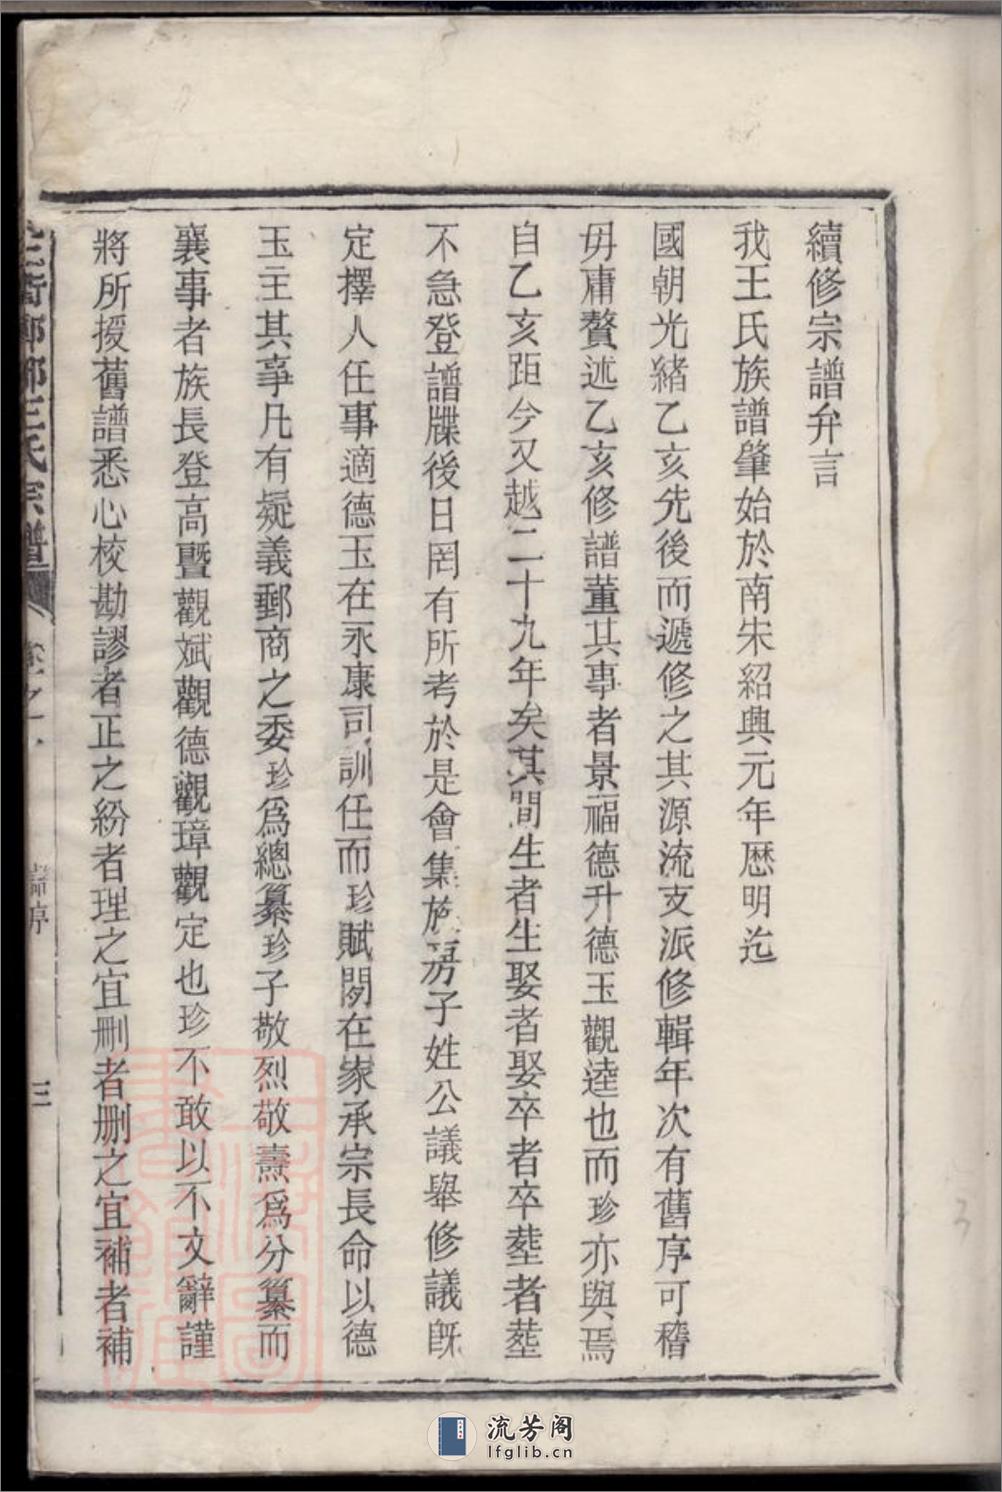 續修宗譜弁言
我王氏族譜肇始於南宋紹興元年歷明迄
國朝光緒乙亥先後而遞修之其源流支派修輯年次有舊序可稽
毋庸贅述乙亥修譜董其事者景福德升德玉觀逵也而珍亦與焉
自乙亥距今又越二十九年矣其間生者生娶者娶卒者卒塟者塟
不急登譜牒後日罔有所考於是會集族房子姓公議舉修議旣
定擇人任事適德玉在永康司訓任而珍賦閒在家承宗長命以德
玉主其事凡有疑義郵商之委珍爲總纂珍子敬烈敬燾爲分纂而
襄事者族長登高暨觀斌觀德觀璋觀定也珍不敢以不文辭謹
將所授舊譜悉心校勘謬者正之紛者理之宜刪者删之宜補者補
王氏宗譜
卷之一
譜序
三
流芳阁
lfglib.cn